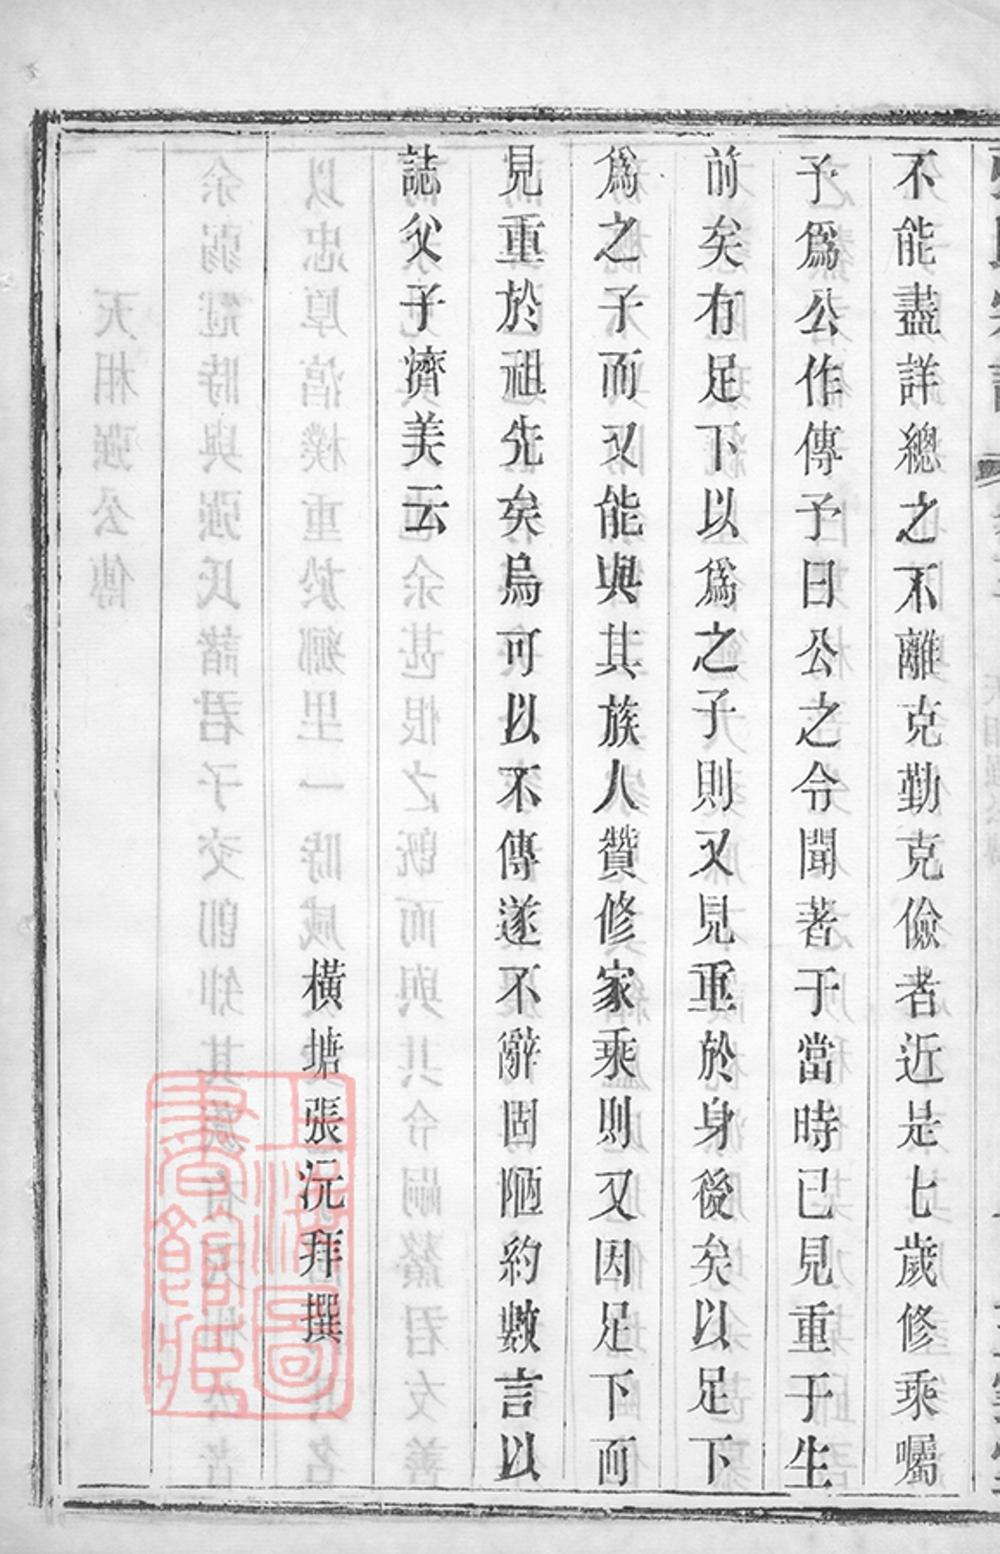 不能盡詳總之不離克勤克儉者近是七歲修乘囑
予爲公作傳予曰公之令聞著于當時已見重于生
前矣有足下以爲之子則又見重於身後矣以足下
爲之子而又能與其族人贊修家乘則又因足下而
見重於祖先矣烏可以不傳遂不辭固陋約數言以
誌父子濟美云
橫塘張沅拜撰
上海圖書館藏